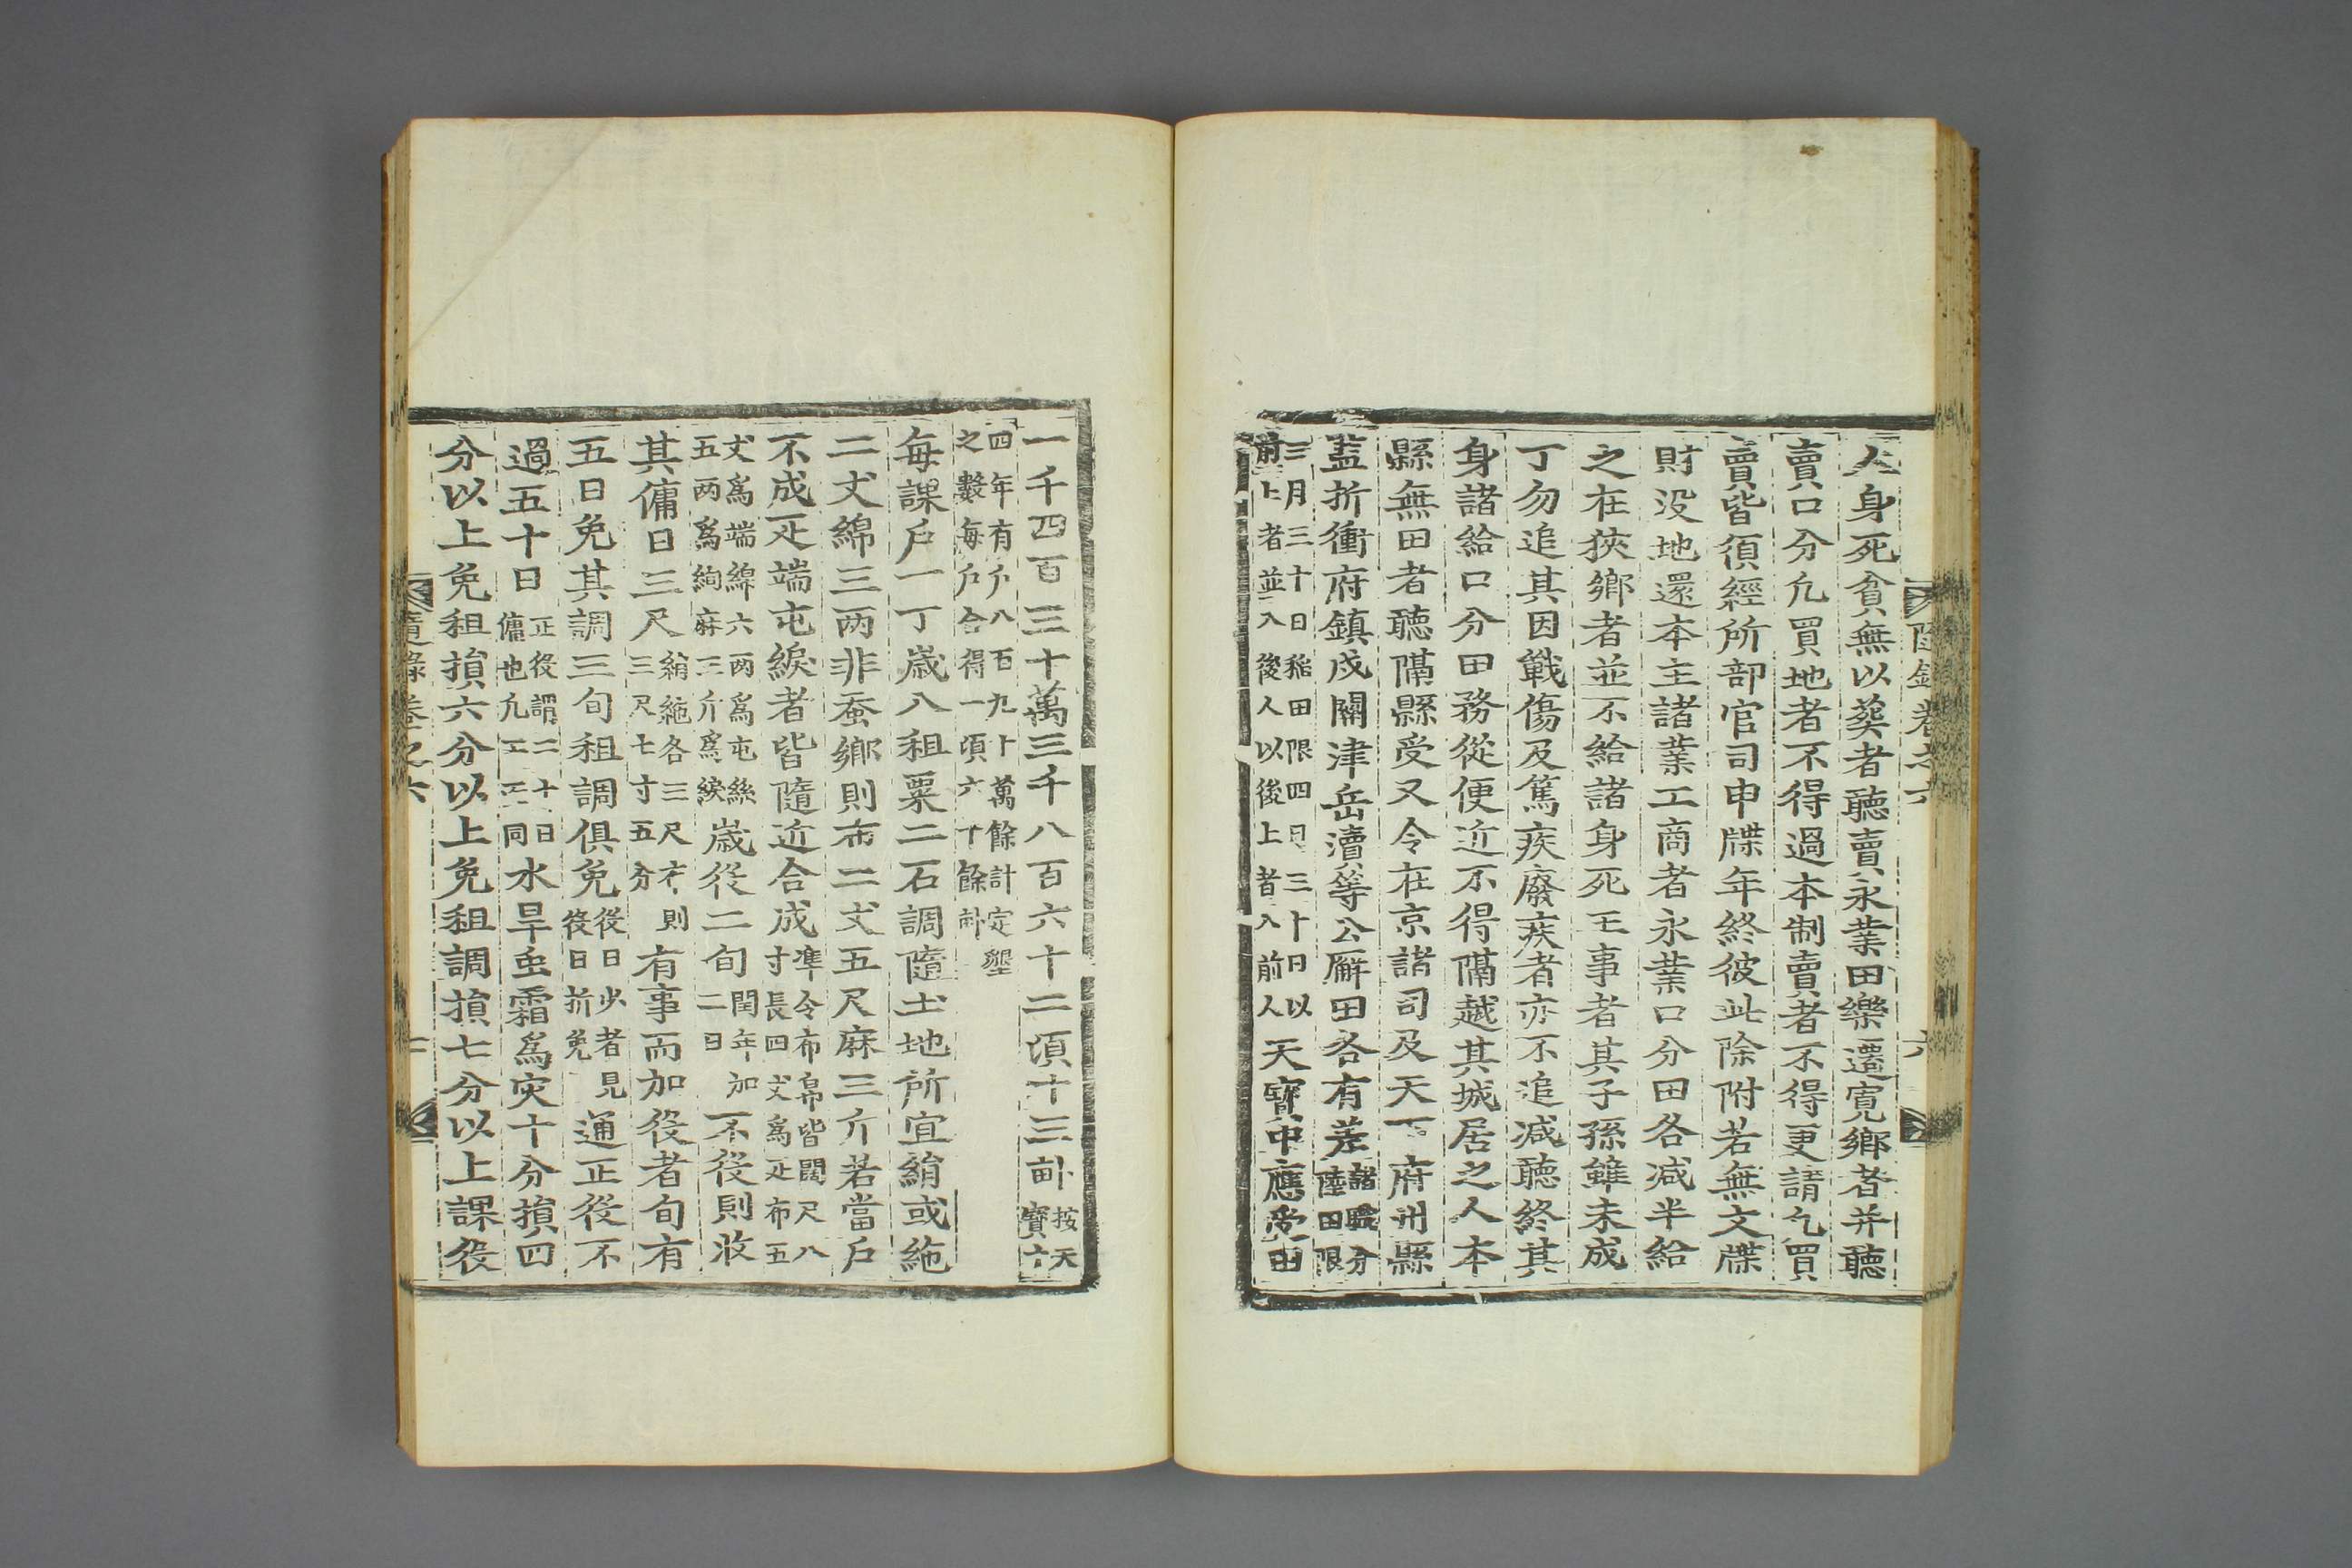 隨錄卷之六
六
人身死貧無以葬者聽賣永業田樂遷寬鄉者并聽
賣口分凡買地者不得過本制賣者不得更請凡買
賣皆須經所部官司申牒年終彼此除附若無文牒
財没地還本主諸業工商者永業口分田各减半給
之在狹鄉者並不給諸身死王事者其子孫雖未成
丁勿追其因戰傷及篤疾廢疾者亦不追减聽終其
身諸給口分田務從便近不得隔越其城居之人本
縣無田者聽隔縣受又令在京諸司及天下府州縣
監折衝府鎮戍關津岳瀆等公廨田各有差諸職分
陸田限
三月三十日稻田限四月三十日以
前上者並入後人以後上者入前人天寶中應受田
一千四百三十萬三千八百六十二頃十三畝按天
寶十
四年有戶八百九十萬餘計定墾
之數每戶合得一頃六十餘畝
每課戶一丁歲入租粟二石調隨土地所宜綃或絁
二丈綿三两非蚕鄉則布二丈五尺麻三斤若當戶
不成疋端屯綟者皆隨近合成準令布帛皆闊尺八
寸長四丈爲疋布五
丈爲端綿六两爲屯絲
五两爲絇麻三斤爲綟歲役二旬閏年加
二日不役則收
其傭日三尺絹絁各三尺布則
三尺七寸五分有事而加役者旬有
五日免其調三旬租調俱免役日少者見
役日折免通正役不
過五十日正役謂二十日
傭也凡工工同水旱虫霜爲灾十分損四
分以上免租損六分以上免租調損七分以上課役
隨錄卷之六